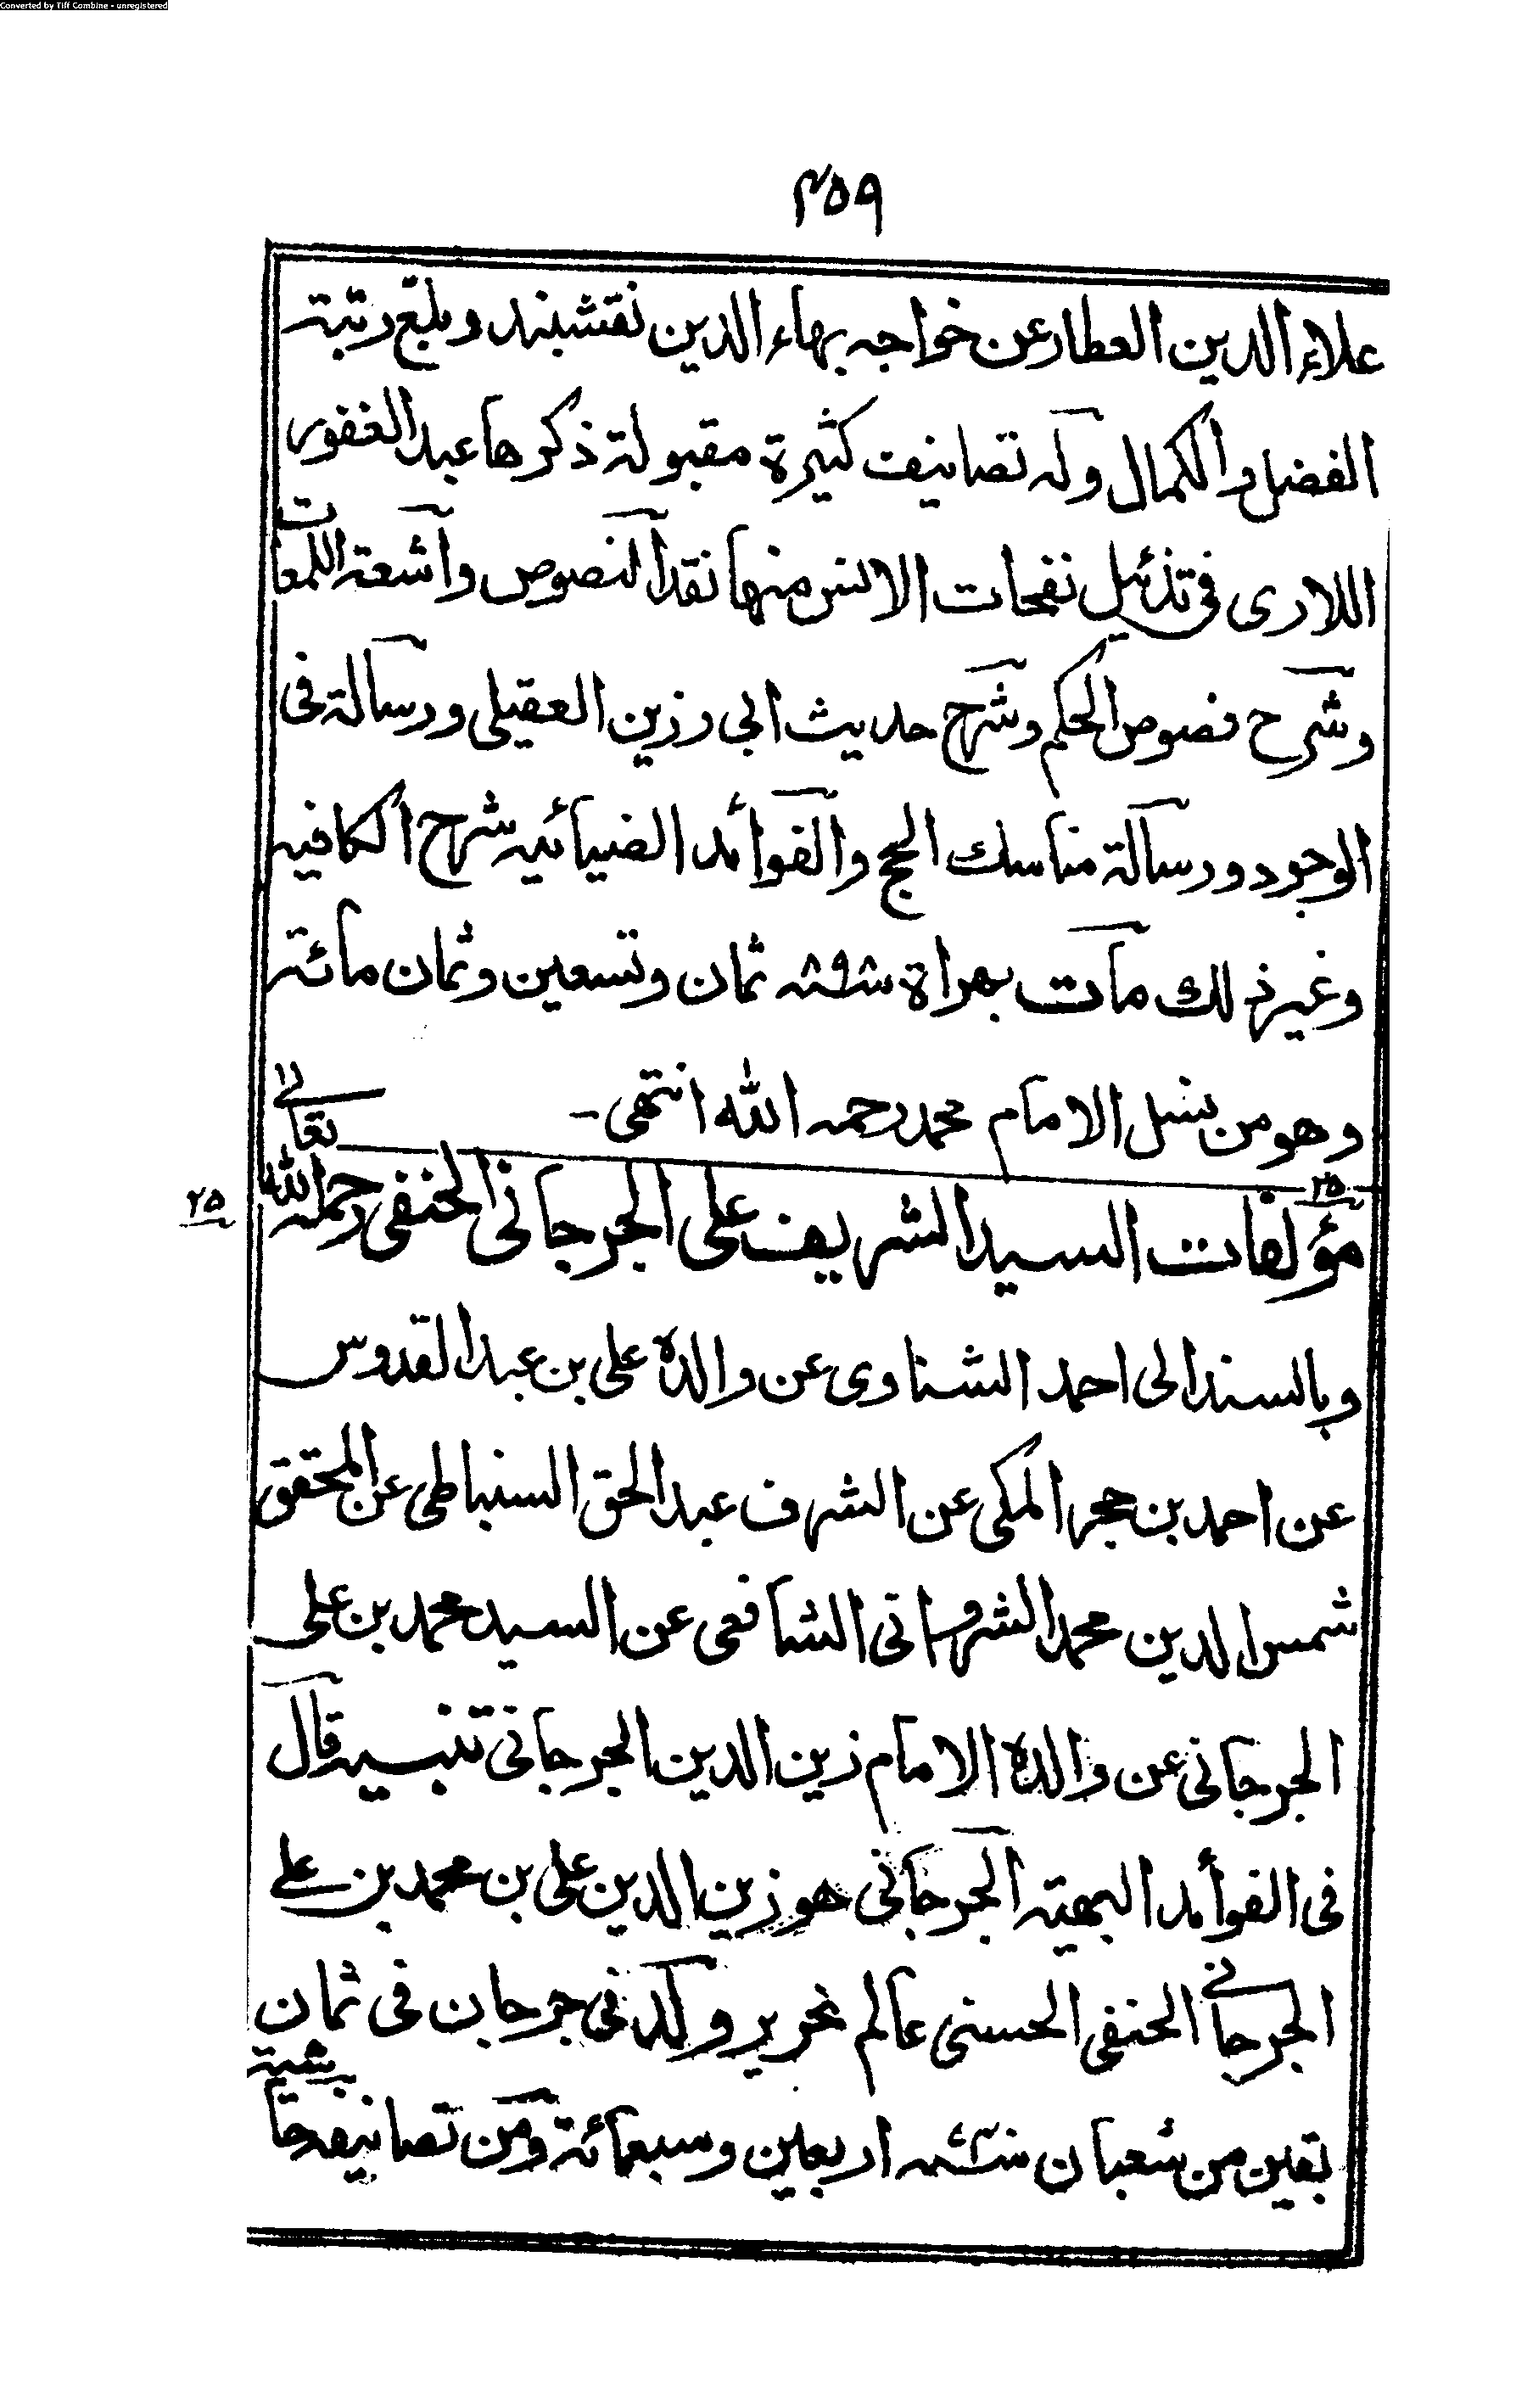 Converted by Tiff Combine - unregistered
٣٥٩
علاء الدين العطار عن خواجه بهاء الدين نقشبند وبلغ رتبة
الفضل والكمال وله تصانيف كثيرة مقبولة ذكرها عبد الغفور
اللارى فى تذئيل نفحات الانس منها نقد النصوص واشعة اللمعات
وشرح فصوص الحكم وشرح حديث ابى رزين العقيلى ورسالة فى
الوجود ورسالة مناسك الحج والفوائد الضيائيه شرح الكافيه
وغير ذلك مات بهراة ثمان وتسعين وثمان مائة
وهو من نسل الامام محمد رحمه الله انتهى -
٢٥ مؤلفات السيد الشريف على الجرجانى الحنفى رحمه الله تعالى ٢٥
وبالسند الى احمد الشناوى عن والده على بن عبد القدوس
عن احمد بن حجر المكى عن الشرف عبد الحق السنباطى عن المحقق
شمس الدين محمد الشروانى الشافعى عن السيد محمد بن على
الجرجانى عن والده الامام زين الدين الجرجانى تنبيه قال
فى الفوائد البهية الجرجانى هو زين الدين على بن محمد بن على
الجرجانى الحنفى الحسنى عالم نحرير ولد فى جرجان فى ثمان
بقين من شعبان اربعين وسبعمائة ومن تصانيفه حاشية